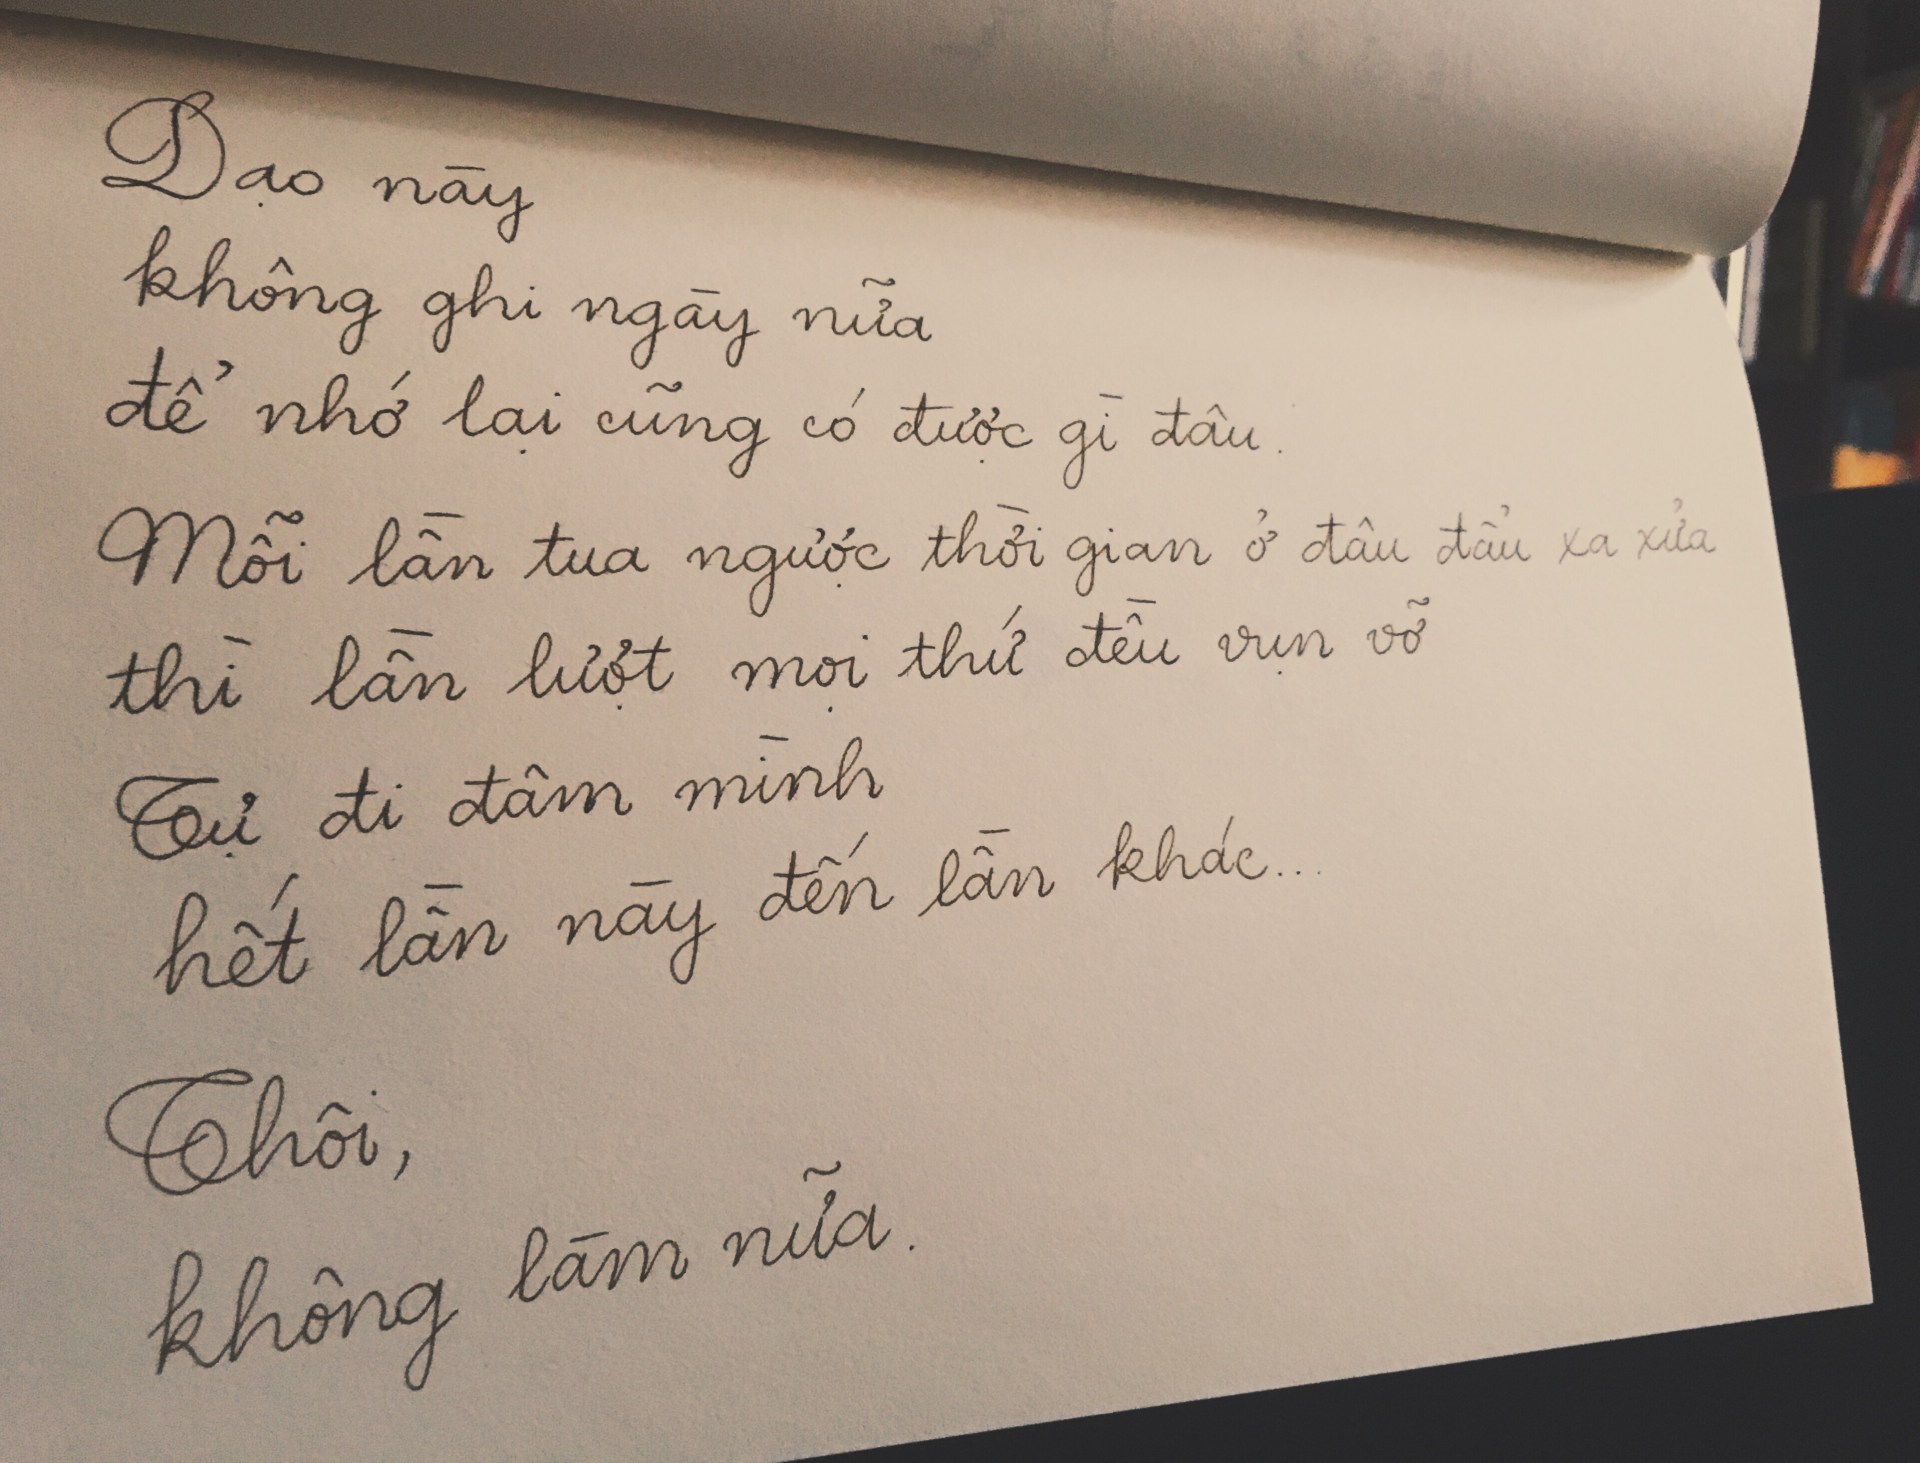 Dạo này
không ghi ngày nữa
để nhớ lại cũng có được gì đâu.
Mỗi lần tua ngược thời gian ở đâu đẩu xa xửa
thì lần lượt mọi thứ đều vụn vỡ
Tự đi đâm mình
hết lần này đến lần khác...
Thôi,
không làm nữa.